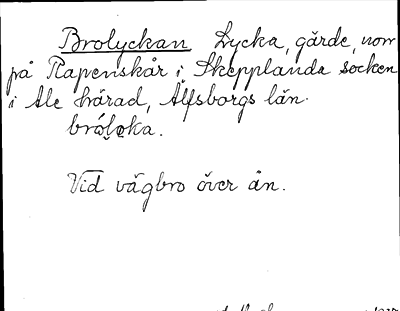 Brolyckan Lycka, gärde, norr
på Rapenskår i Skepplanda socken
i Ale härad, Älfsborgs län.
Vid vägbro över ån.